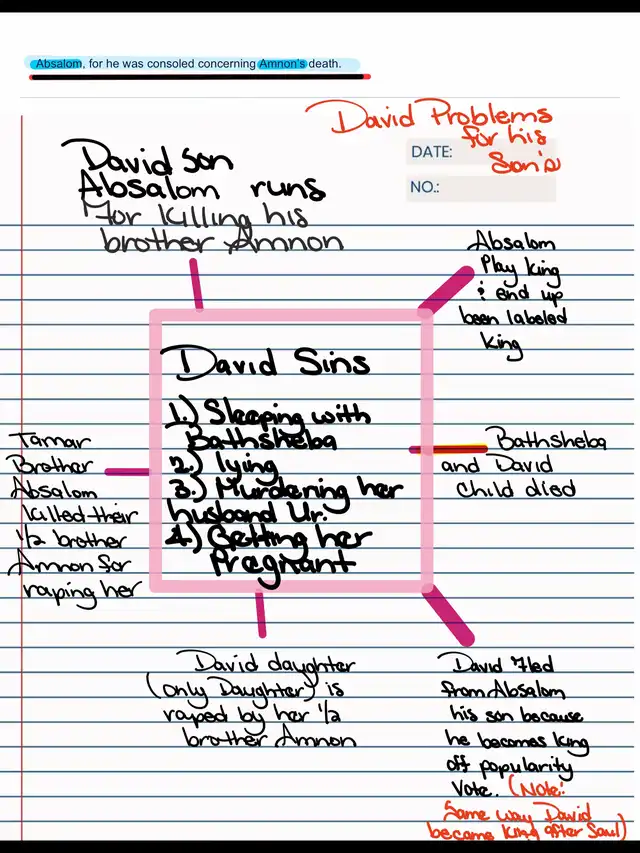 Absalom, for he was consoled concerning Amnon's death.
David Problems
for his
Son's
DATE:
NO.:
David son
Absalom runs
for killing his
brother Amnon
Absalom
Play king
& end up
been labeled
king
David Sins
1.) Sleeping with
Bathsheba
2.) lying
3.) Murdering her
husband Ur.
4.) Getting her
Pregnant
Tamar
Brother
Absalom
killed their
1/2 brother
Amnon for
raping her
Bathsheba
and David
Child died
David daughter
(only Daughter) is
raped by her 1/2
brother Amnon
David fled
from Absalom
his son because
he becomes king
off popularity
Vote. (Note:
Same way David
became king after Saul)